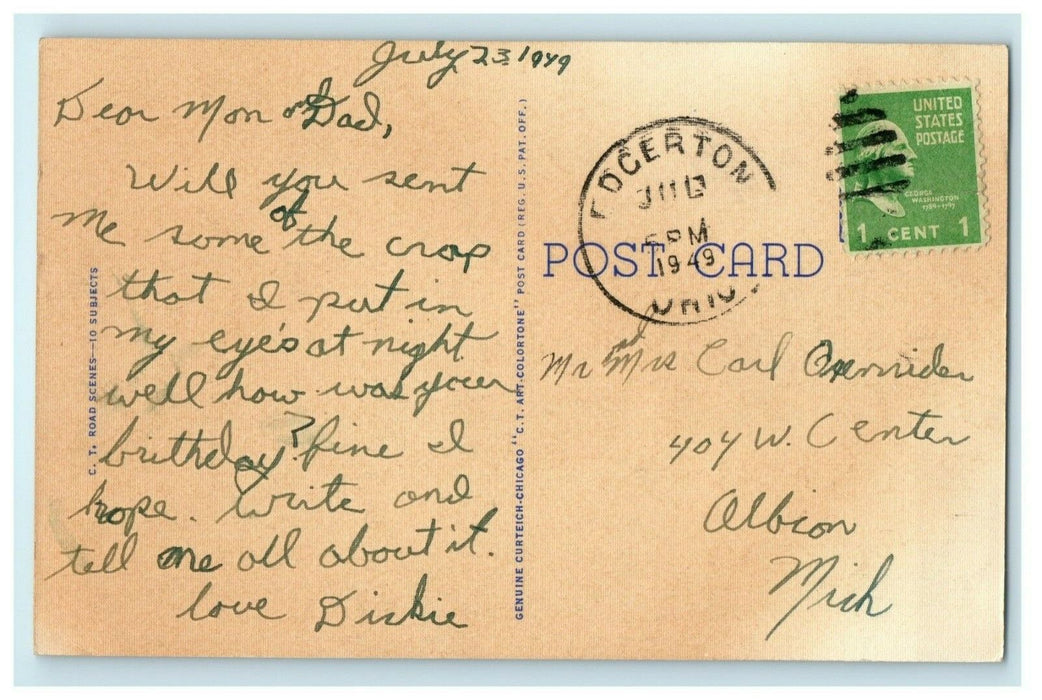 July 23 1949
Dear Mom and Dad,
Will you sent
me some of the crap
that I put in
my eye's at night
well how was your
brithday? fine I
hope. Write and
tell me all about it.
love Dickie
C. T. ROAD SCENES—10 SUBJECTS
GENUINE CURTEICH-CHICAGO "C. T. ART-COLORTONE" POST CARD (REG. U. S. PAT. OFF.)
EDGERTON
JUL
5 PM
1949
OHIO
UNITED
STATES
POSTAGE
GEORGE
WASHINGTON
1789-1797
1 CENT 1
POST CARD
Mr and Mrs Carl
404 W. Center
Albion
Mich